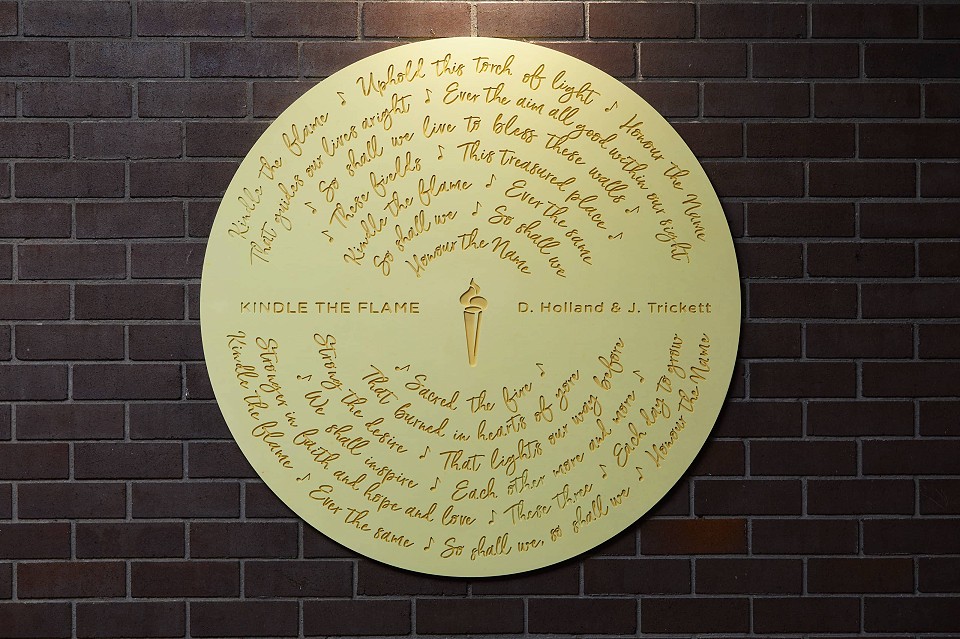 Kindle the flame ♪ Uphold this torch of light ♪ Honour the Name
That guides our lives aright ♪ Ever the aim all good within our sight
♪ So shall we live to bless these walls ♪
♪ These fields ♪ This treasured place ♪
Kindle the flame ♪ Ever the same
So shall we ♪ So shall we
Honour the Name
KINDLE THE FLAME D. Holland & J. Trickett
♪ Sacred the fire ♪
That burned in hearts of yore
Strong the desire ♪ That lights our way before
♪ We shall inspire ♪ Each other more and more ♪
Stronger in faith and hope and love ♪ These three ♪ Each day to grow
Kindle the flame ♪ Ever the same ♪ So shall we, so shall we ♪ Honour the Name